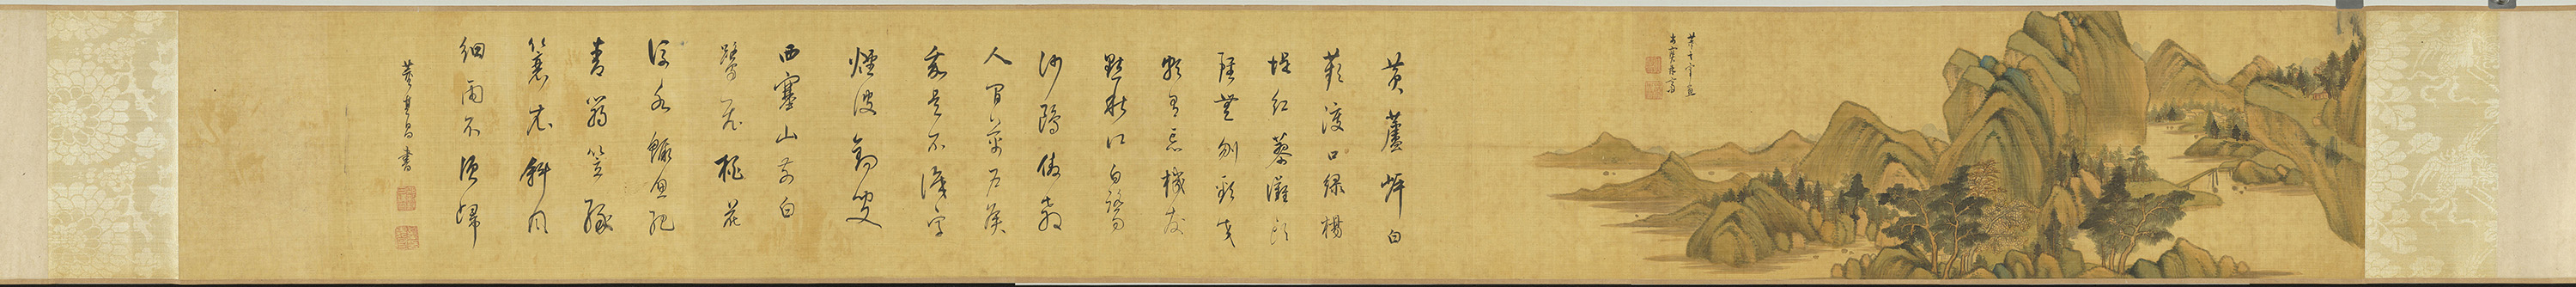 黃蘆岸白
蘋渡口綠楊
堤紅蓼灘頭
雖無刎頸交
有忘機友
點秋江白鷺
沙鷗傲殺
人間萬戶侯
是不識字
煙波釣叟
西塞山前白
鷺飛桃花
流水鱖魚肥
青箬笠綠
簑衣斜風
細雨不須歸
董其昌書